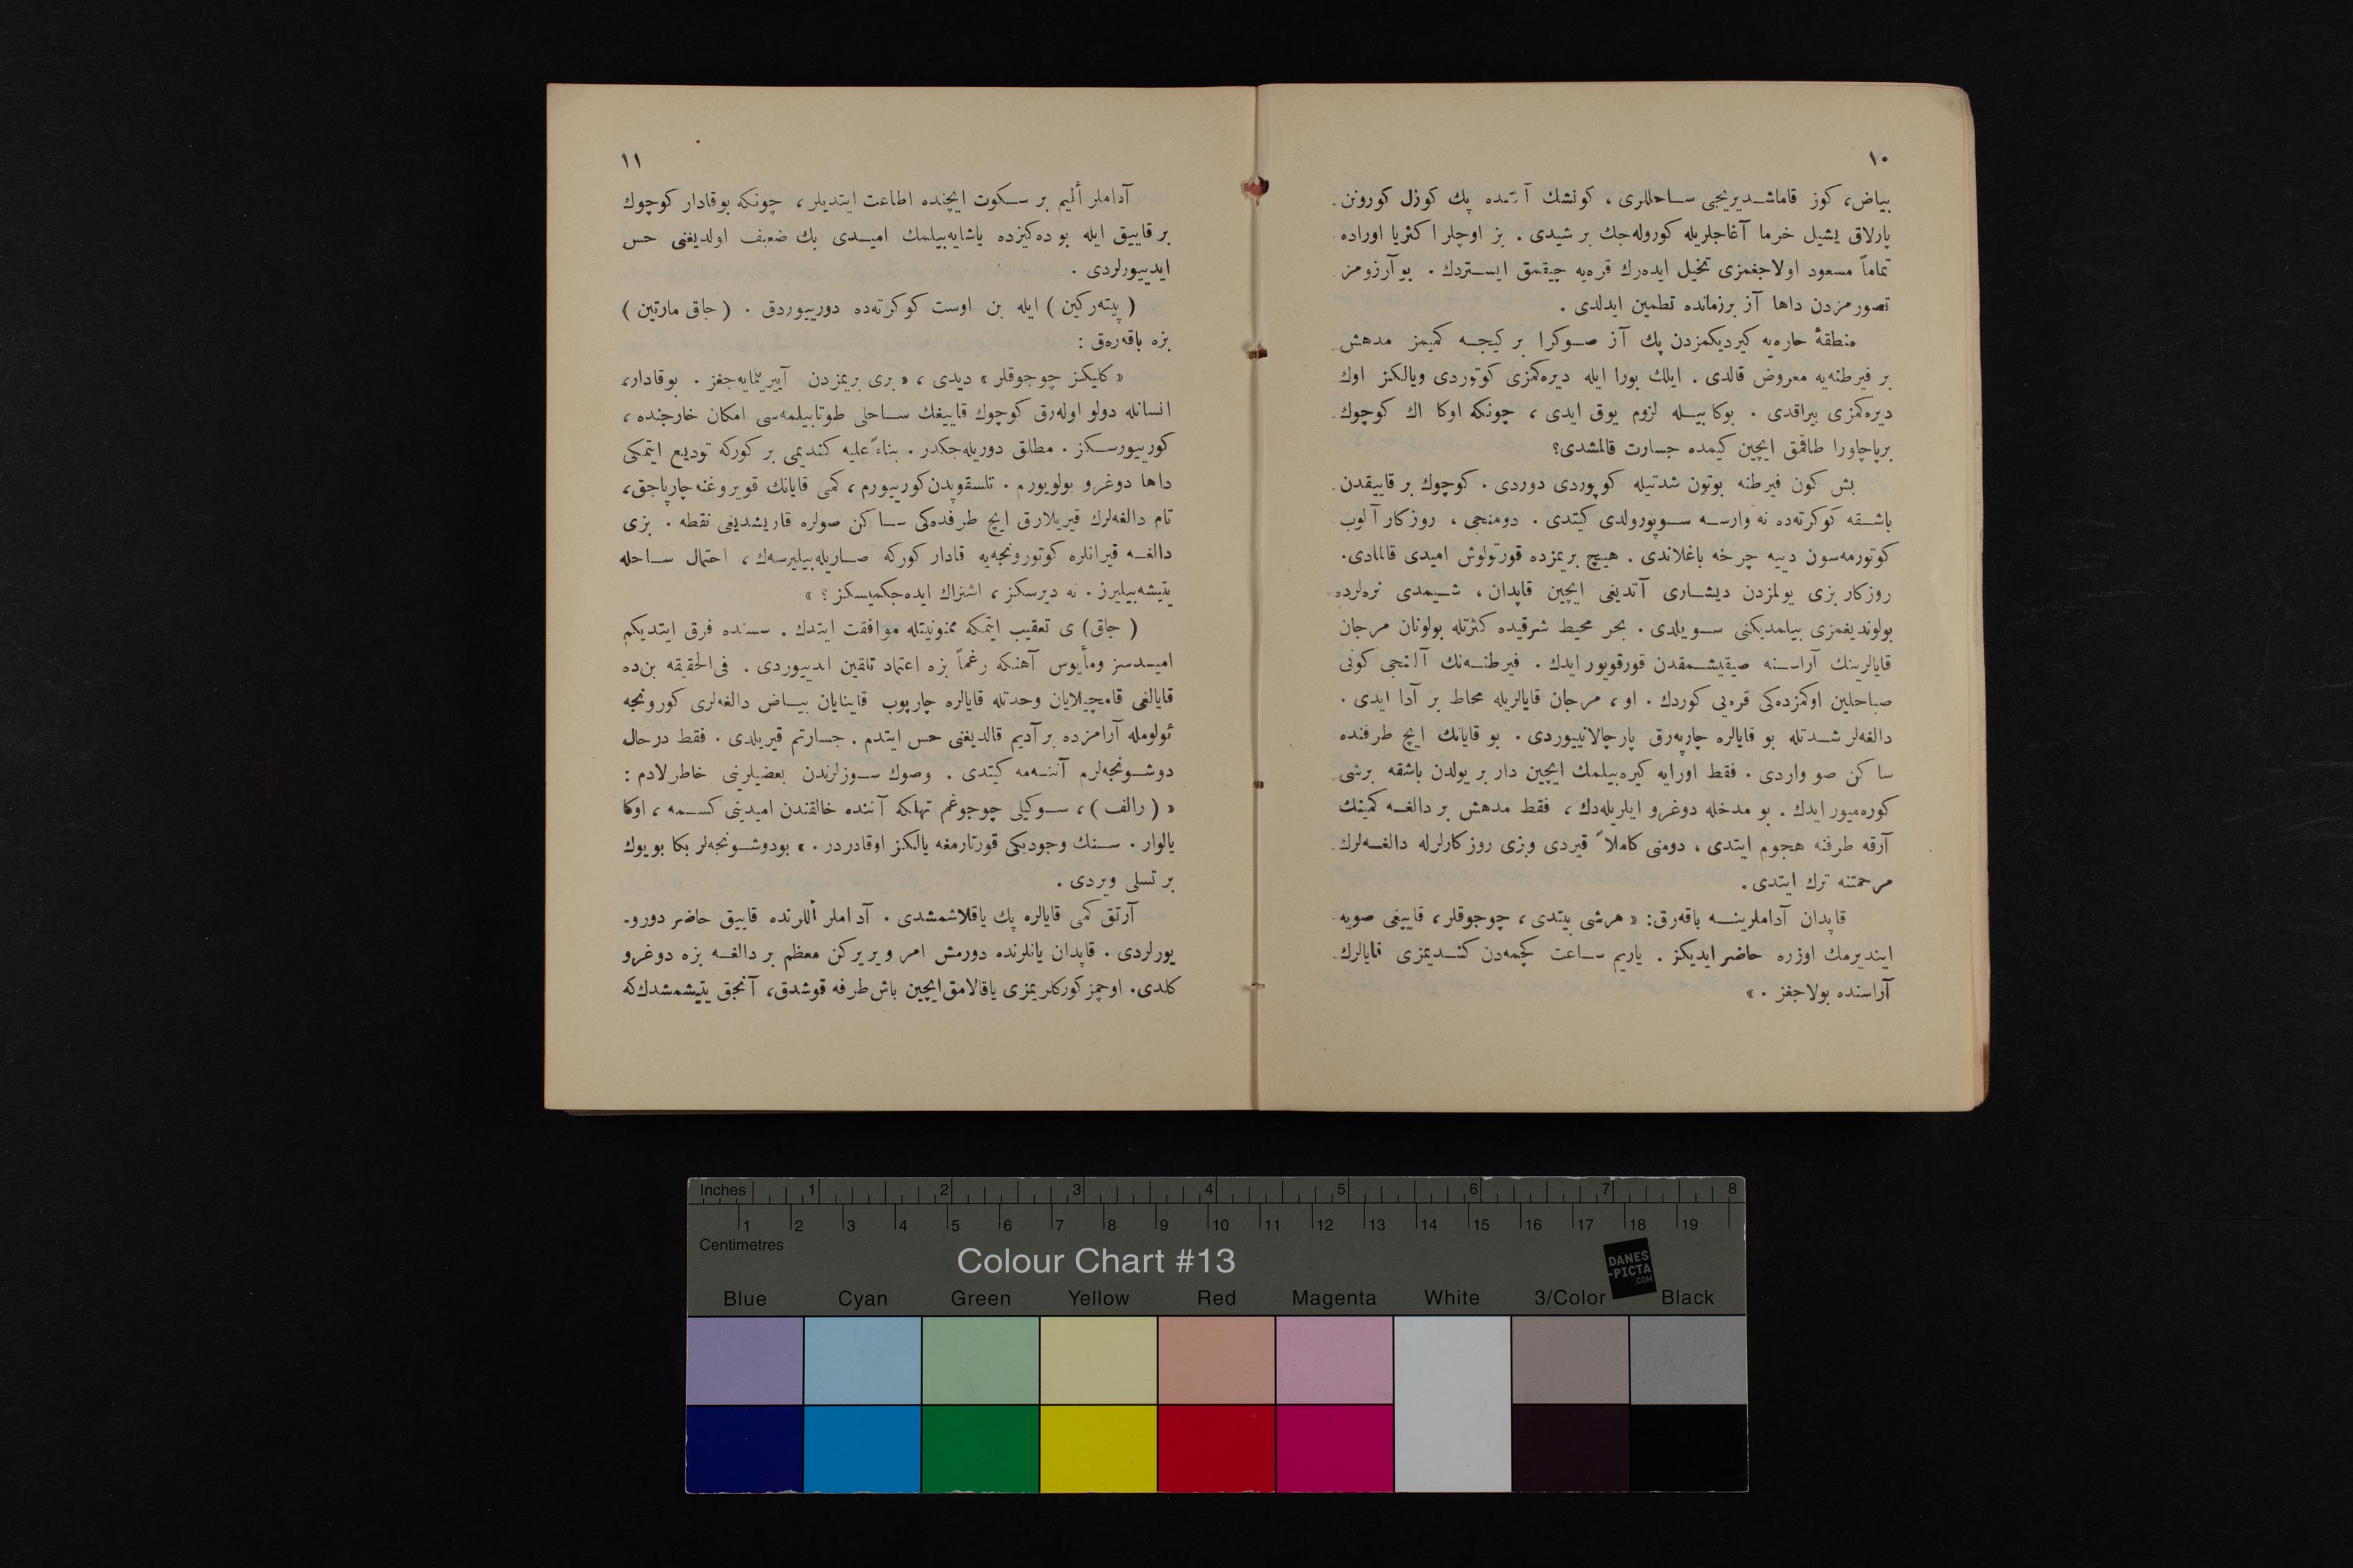 ١٠
بياض، كوز قاماشديريجى ساحللرى، كونشك آلتنده پك كوزل كورونن
پارلاق يشيل خرما آغاجلريله كوروله‌جك بر شيدى. بز اوچلر اكثريا اوراده
تماماً مسعود اولاجغمزى تخيل ايده‌رك قره‌يه چيقمق ايستردك. بو آرزومز
تصورمزدن داها آز برزمانده تطمين ايدلدى.
منطقهٔ حاره‌يه كيرديكمزدن پك آز صوكرا بر كيجه كميمز مدهش
بر فيرطنه‌يه معروض قالدى. ايلك بورا ايله ديره‌كمزى كوتوردى ويالكز اوك
ديره‌كمزى بيراقدى. بوكا بيله لزوم يوق ايدى، چونكه اوكا اك كوچوك
برپاچاورا طاقمق ايچين كيمده جسارت قالمشدى؟
بش كون فيرطنه بوتون شدتيله كوپوردى دوردى. كوچوك بر قاييقدن
باشقه كوكرته‌ده نه وارسه سوپورولدى كيتدى. دومنجى، روزكار آلوب
كوتورمه‌سون دييه چرخه باغلاندى. هيچ بريمزده قورتولوش اميدى قالمادى.
روزكار بزى يولمزدن ديشارى آتديغى ايچين قاپدان، شيمدى نره‌لرده
بولونديغمزى بيلمديكنى سويلدى. بحر محيط شرقيده كثرتله بولونان مرجان
قايالرينك آراسنه صيقيشمقدن قورقويور ايدك. فيرطنه‌نك آلتنجى كونى
صباحلين اوكمزده‌كى قره‌يى كوردك. او، مرجان قايالريله محاط بر آدا ايدى.
دالغه‌لر شدتله بو قايالره چارپه‌رق پارچالانييوردى. بو قايانك ايچ طرفنده
ساكن صو واردى. فقط اورايه كيره‌بيلمك ايچين دار بر يولدن باشقه برشى
كوره‌ميور ايدك. بو مدخله دوغرو ايلريله‌دك، فقط مدهش بر دالغه كمينك
آرقه طرفنه هجوم ايتدى، دومنى كاملاً قيردى وبزى روزكارلرله دالغه‌لرك
مرحمتنه ترك ايتدى.
قاپدان آداملرينه باقه‌رق: «هرشى بيتدى، چوجوقلر، قاييغى صويه
اينديرمك اوزره حاضر ايديكز. ياريم ساعت كچمه‌دن كنديمزى قايالرك
آراسنده بولاجغز.»
١١
آداملر أليم بر سكوت ايچنده اطاعت ايتديلر، چونكه بوقادار كوچوك
بر قاييق ايله بو ده‌كيزده ياشايه‌بيلمك اميدى پك ضعيف اولديغنى حس
ايدييورلردى.
(پيته‌ركين) ايله بن اوست كوكرته‌ده دورييوردق. (جاق مارتين)
بزه باقه‌رق:
«كليكز چوجوقلر» ديدى، «برى بريمزدن آييريلمايه‌جغز. بوقادار،
انسانله دولو اوله‌رق كوچوك قاييغك ساحلى طوتابيلمه‌سى امكان خارجنده،
كورييورسكز. مطلق دوريله‌جكدر. بناءً عليه كنديمى بر كوركه توديع ايتمكى
داها دوغرو بولويورم. تلسقوپدن كورييورم، كمى قايانك قويروغنه چارپاجق،
تام دالغه‌لرك قيريلارق ايچ طرفده‌كى ساكن صولره قاريشديغى نقطه. بزى
دالغه قيرانلره كوتورونجه‌يه قادار كوركه صاريله‌بيليرسه‌ك، احتمال ساحله
يتيشه‌بيليرز. نه ديرسكز، اشتراك ايده‌جكميسكز؟»
(جاق) ى تعقيب ايتمكه ممنونيتله موافقت ايتدك. سسنده فرق ايتديكم
اميدسز ومأيوس آهنكه رغماً بزه اعتماد تلقين ايدييوردى. فى‌الحقيقه بن‌ده
قايالغى قامچيلايان وحدتله قايالره چارپوب قاينايان بياض دالغه‌لرى كورونجه
ئولومله آرامزده بر آديم قالديغنى حس ايتدم. جسارتم قيريلدى. فقط درحال
دوشونجه‌لرم آننه‌مه كيتدى. وصوك سوزلرندن بعضيلرينى خاطرلادم:
«(رالف)، سوكيلى چوجوغم تهلكه آننده خالقندن اميدينى كسمه، اوكا
يالوار. سنك وجوديكى قورتارمغه يالكز اوقادردر.» بودوشونجه‌لر بكا بويوك
بر تسلى ويردى.
آرتق كمى قايالره پك ياقلاشمشدى. آداملر أللرنده قاييق حاضر دورو-
يورلردى. قاپدان يانلرنده دورمش امر ويريركن معظم بر دالغه بزه دوغرو
كلدى. اوچمز كوركلريمزى ياقالامق ايچين باش طرفه قوشدق، آنجق يتيشمشدك كه
Inches 1 2 3 4 5 6 7 8
1 2 3 4 5 6 7 8 9 10 11 12 13 14 15 16 17 18 19
Centimetres
Colour Chart #13
DANES
-PICTA
.COM
Blue Cyan Green Yellow Red Magenta White 3/Color Black